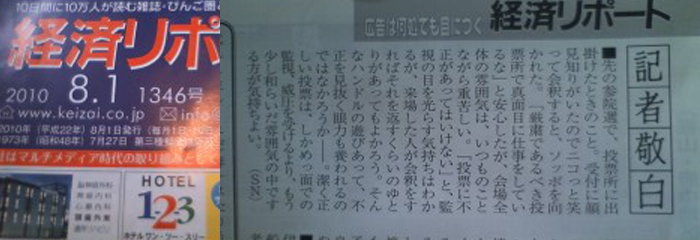 10日間に10万人が読む雑誌・びんご圏
経済リポ
2010 8.1 1346号
www.keizai.co.jp
info
2010年(平成22年)8月1日発行(毎月1日・10日
1973年(昭和48年)7月27日 第三種
はマルチメディア時代の取り組み
脳神経外科
HOTEL
1-2-3
ホテル ワン・ツー・スリー
広告は何処でも目につく
経済リポート
記者敬白
■先の参院選で、投票所に出
掛けたときのこと。受付に顔
見知りがいたのでニコっと笑
って会釈すると、ソッポを向
かれた。「厳粛であるべき投
票所で真面目に仕事をしてい
るな」と安心したが、会場全
体の雰囲気は、いつものこと
ながら重苦しい。「投票に不
正があってはいけない」と監
視の目を光らす気持ちはわか
るが、来場した人が会釈をす
ればそれを返すくらいのゆと
りがあってもよかろう。そん
なハンドルの遊びあって、不
正を見抜く眼力も養われるの
ではなかろうか―。潔く正
しい投票は、しかめっ面での
監視、威圧を受けるより、もう
少し和らいだ雰囲気の中です
る方が気持ちよい。(SN)